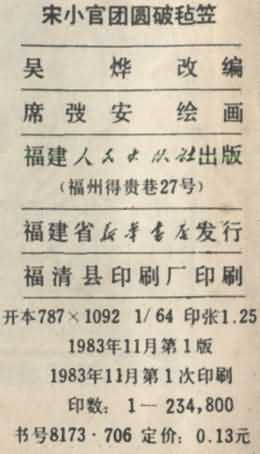 宋小官团圆破毡笠
吴烨 改编
席弢安 绘画
福建人民出版社出版
(福州得贵巷27号)
福建省新华书店发行
福清县印刷厂印刷
开本787×1092 1/64 印张1.25
1983年11月第1版
1983年11月第1次印刷
印数: 1—234,800
书号8173·706 定价: 0.13元